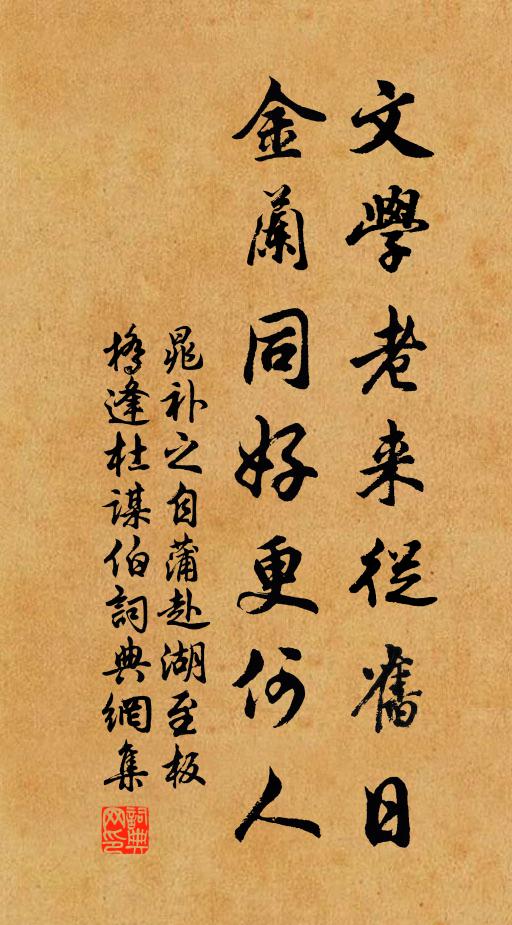 文學老来從舊日
金蘭同好更何人
晁补之自蒲赴湖至板
橋逢杜謀伯詞典網集
詞典
网印